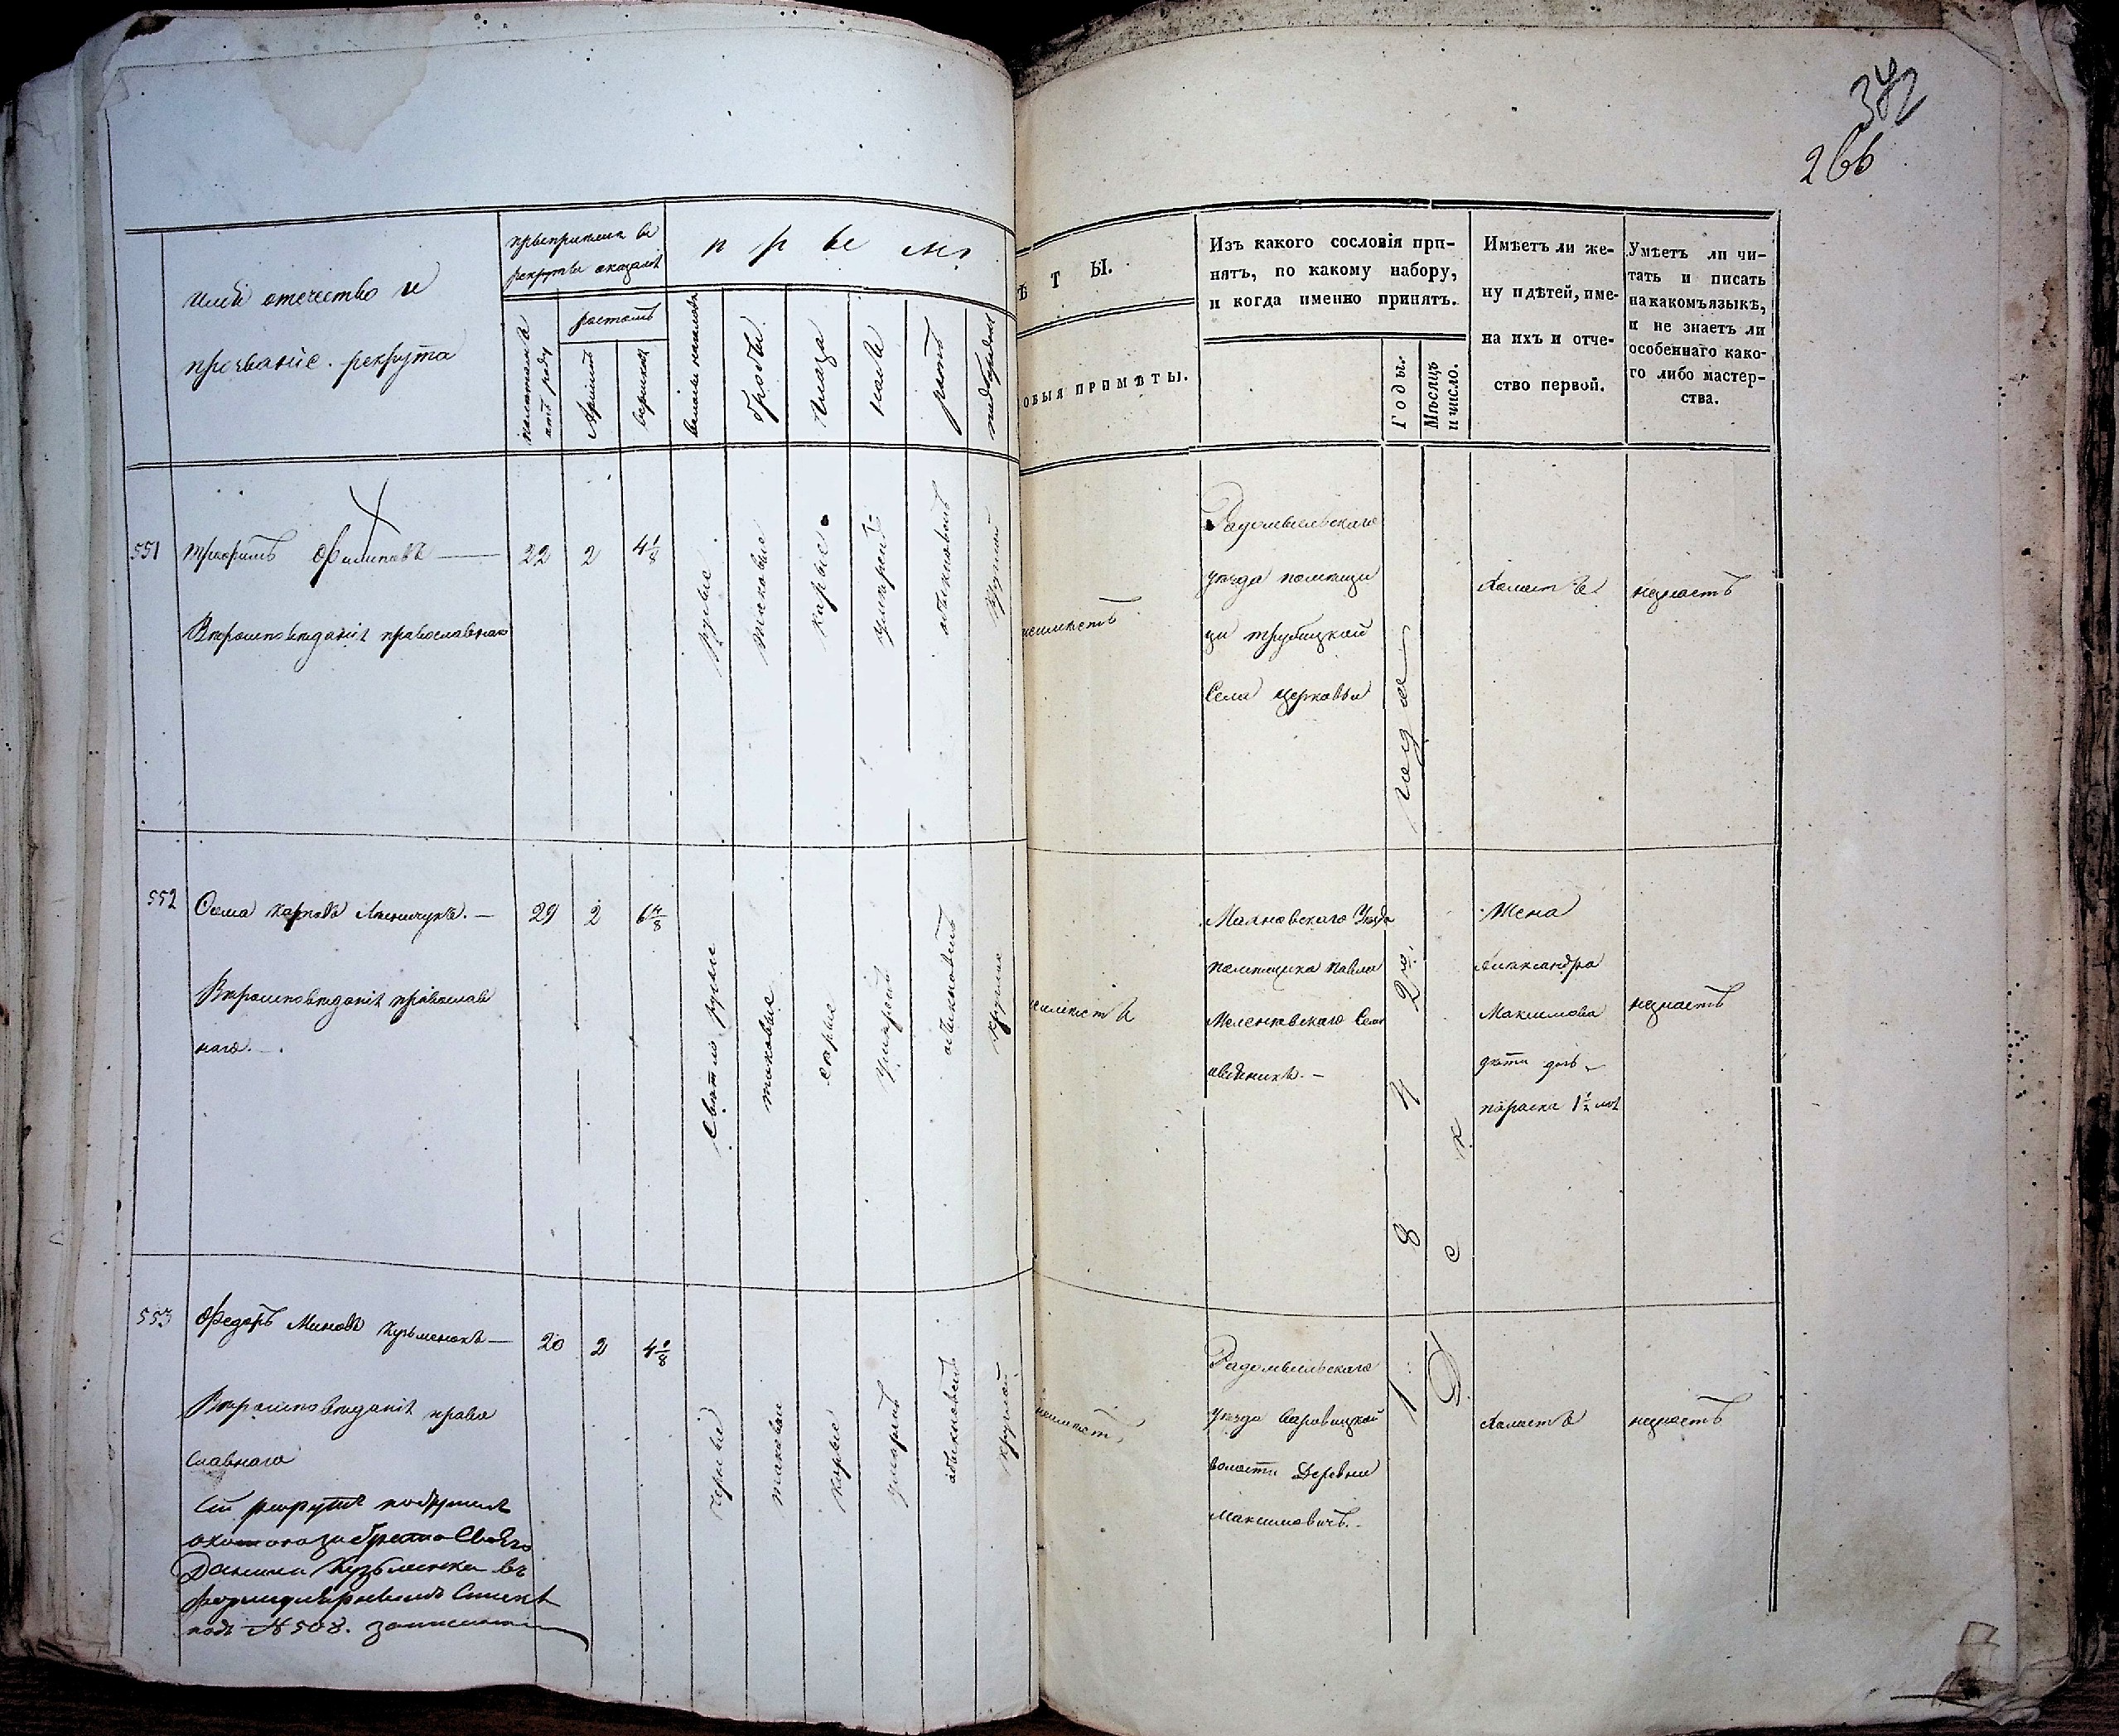 342
266
имѣ отечество и
прозваніе. рекрута
при приемѣ въ
рекруты оказался
п р и м
ростомъ
Аршинъ
вершковъ
волосы на головѣ
брови
глаза
носъ
ротъ
подбородокъ
Ѣ Т Ы.
ОБЫЯ ПРИМѢТЫ.
Изъ какого сословія при-
нятъ, по какому набору,
и когда именно принятъ.
Годы.
Мѣсяцъ
и число.
Имѣетъ ли же-
ну и дѣтей, име-
на ихъ и отче-
ство первой.
Умѣетъ ли чи-
тать и писать
на какомъ языкѣ,
и не знаетъ ли
особеннаго како-
го либо мастер-
ства.
551
Трофимъ Филиповъ
22
2
4 1/8
Вѣроисповѣданія православнаго
русые
таковые
карые
умѣрený
обыкновенъ
круглой
неимѣетъ
Радомысльскаго
уѣзда помѣщи
цы Трубицкой
Села Церковьи
Холостъ
незнаетъ
года
552
Осипа Карповъ
29
2
6 4/8
Вѣроисповѣданія православ
наго.
свѣтло русые
таковые
сѣрые
умѣрень
обыкновенъ
круглая
неимѣетъ
Махновскаго Уѣзда
помѣщика Павла
Меленевскаго Села
Жена
Александра
Максимова
дѣти дочь
Параска 1 1/2 лѣт
незнаетъ
553
Федоръ Миновъ Кузьменокъ
20
2
4 2/8
Вѣроисповѣданія право
славнаго
Сей рекрутъ поступилъ
охотою за брата Своего
Данила Кузьменка въ
формулярномъ Спискѣ
подъ № 508. записанъ
черные
таковые
карые
умѣренъ
обыкновенъ
круглой
неимѣетъ
Радомысльскаго
уѣзда Варовицкой
волости Деревни
Максимовичъ.
Холостъ
незнаетъ